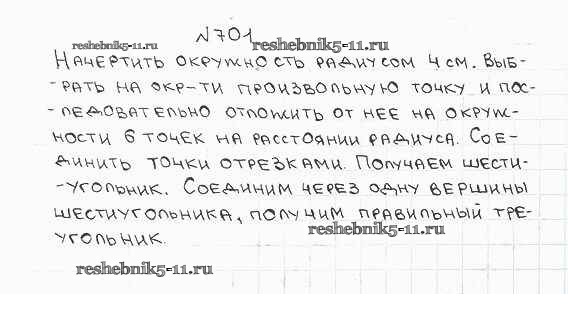 №701
reshebnik5-11.ru reshebnik5-11.ru
Начертить окружность радиусом 4 см. Выб-
-рать на окр-ти произвольную точку и пос-
-ледовательно отложить от нее на окруж-
ности 6 точек на расстоянии радиуса. Сое-
динить точки отрезками. Получаем шести-
-угольник. Соединим через одну вершины
шестиугольника, получим правильный тре-
reshebnik5-11.ru
угольник.
reshebnik5-11.ru